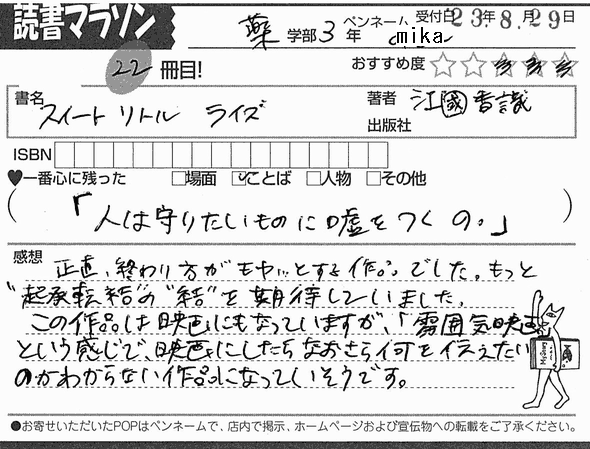 読書マラソン
薬 学部 3 年 ペンネーム mika 受付日 23年 8月 29日
22 冊目! おすすめ度 ☆☆☆☆☆
書名 スイート リトル ライズ 著者 江國香識
出版社
ISBN
♥一番心に残った □場面 ☑ことば □人物 □その他
(「人は守りたいものに嘘をつくの。」)
感想 正直、終わり方がモヤッとする作品でした。もっと
"起承転結"の"結"を期待していました。
この作品は映画にもなっていますが、「雰囲気映画」
という感じで、映画にしたらなおさら何を伝えたい
のかわからない作品になっていそうです。
●お寄せいただいたPOPはペンネームで、店内で掲示、ホームページおよび宣伝物への転載をご了承ください。